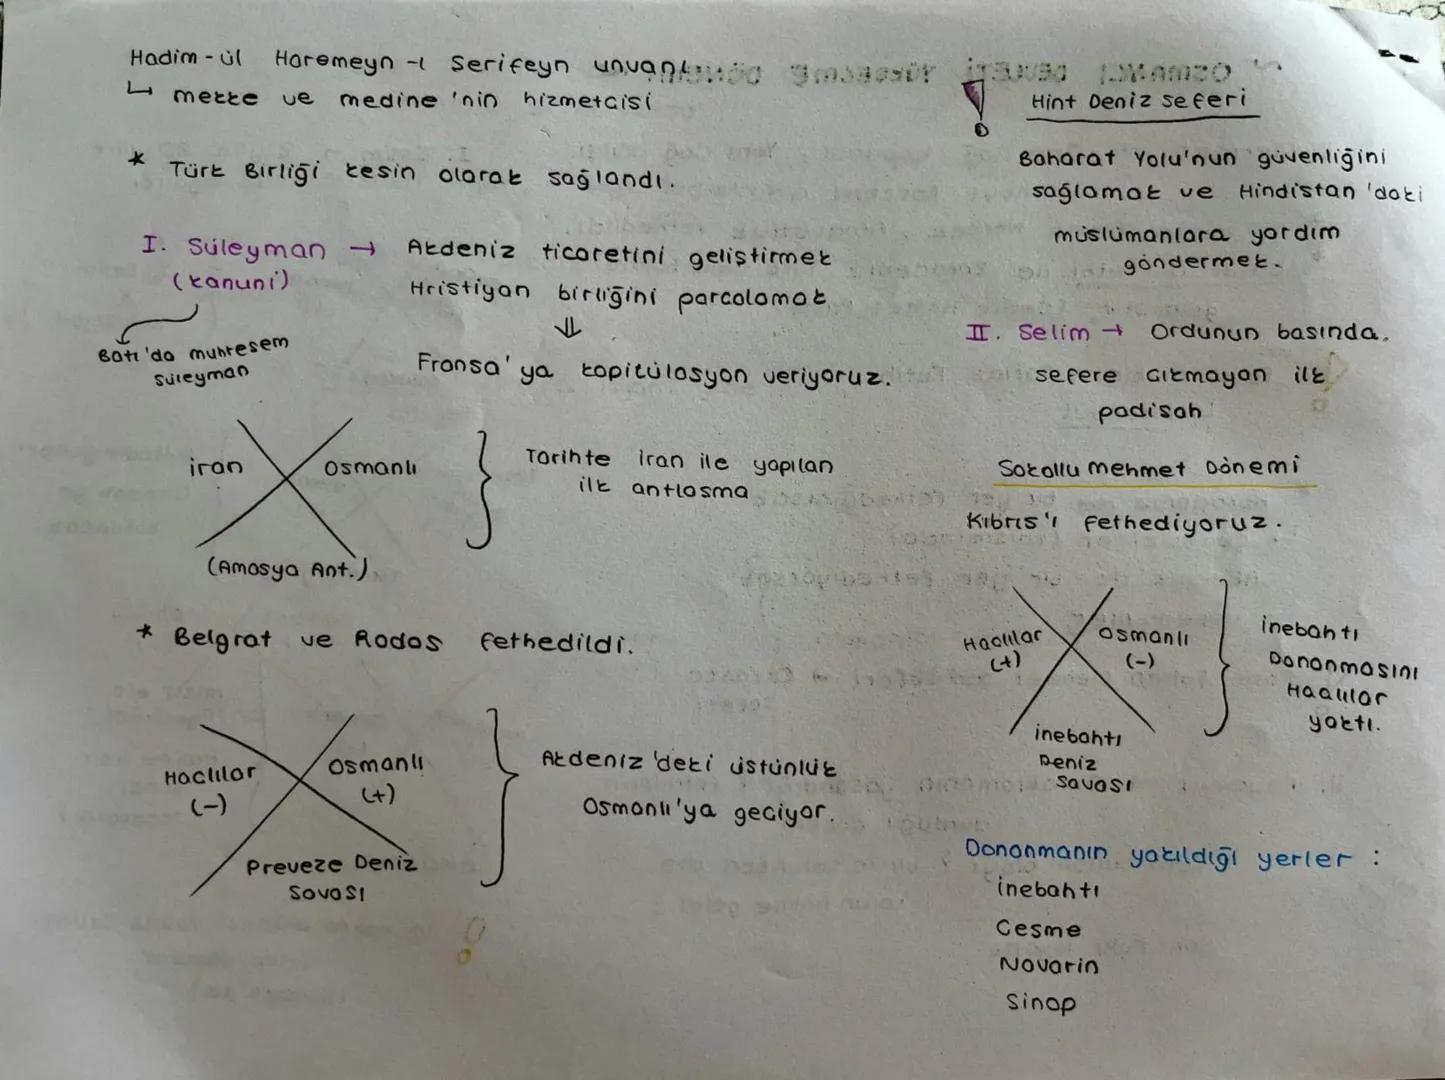 Hadim-ül Haremeyn-ı Serifeyn unvanı
↳ mekke ve medine'nin hizmetcisi
* Türk Birliği kesin olarak sağlandı.
I. Süleyman → Akdeniz ticaretini geliştirmek
(kanuni) Hristiyan birliğini parcalamak
⇓
Batı'da muhtesem
süleyman
Fransa'ya kapitülasyon veriyoruz.
iran Osmanlı
(Amasya Ant.)
Tarihte iran ile yapılan
ilk antlasma
* Belgrat ve Rodos fethedildi.
Haclılar Osmanlı
(-) (+)
Preveze Deniz
Savası
Akdeniz'deki üstünlük
Osmanlı'ya geciyor.
Hint Deniz seferi
Baharat Yolu'nun güvenliğini
sağlamak ve Hindistan'daki
müslümanlara yardım
göndermek.
II. Selim → Ordunun basında,
sefere cıkmayan ilk
padisah
Sokollu mehmet Dönemi
Kıbrıs'ı fethediyoruz.
Haclılar Osmanlı
(+) (-)
inebahtı
Deniz
Savası
inebahtı
Donanmasını
Haclılar
yaktı.
Donanmanın yakıldığı yerler :
inebahtı
Cesme
Navarin
Sinop